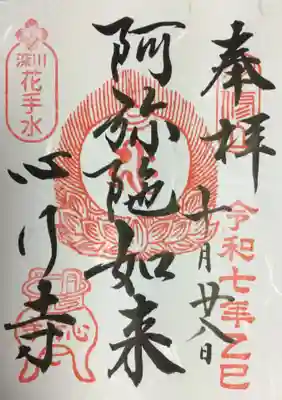 奉拝
十月廿八日
令和七年乙巳
阿弥陀如来
心行寺
深川
花手水